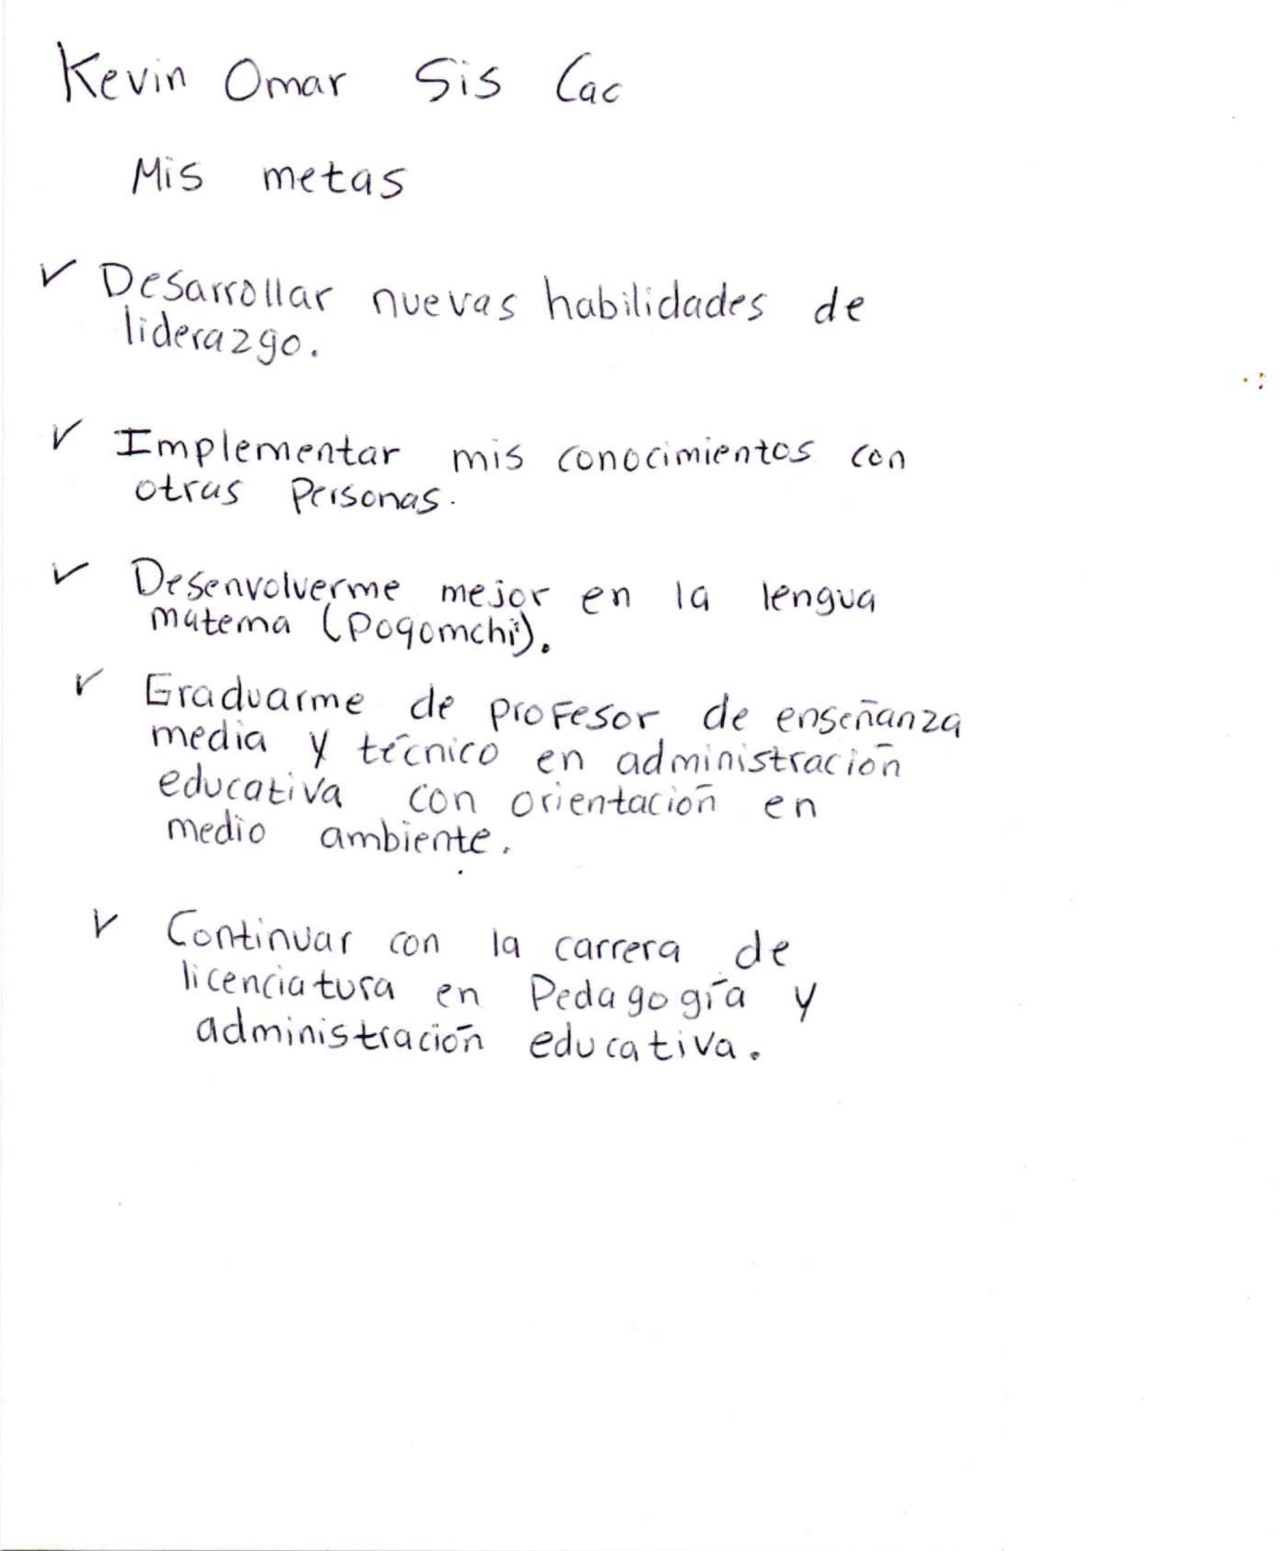 Kevin Omar Sis Cac
Mis metas
✓ Desarrollar nuevas habilidades de
liderazgo.
✓ Implementar mis conocimientos con
otras personas.
✓ Desenvolverme mejor en la lengua
materna (poqomchi).
✓ Graduarme de profesor de enseñanza
media y técnico en administración
educativa con orientación en
medio ambiente.
✓ Continuar con la carrera de
licenciatura en Pedagogía y
administración educativa.